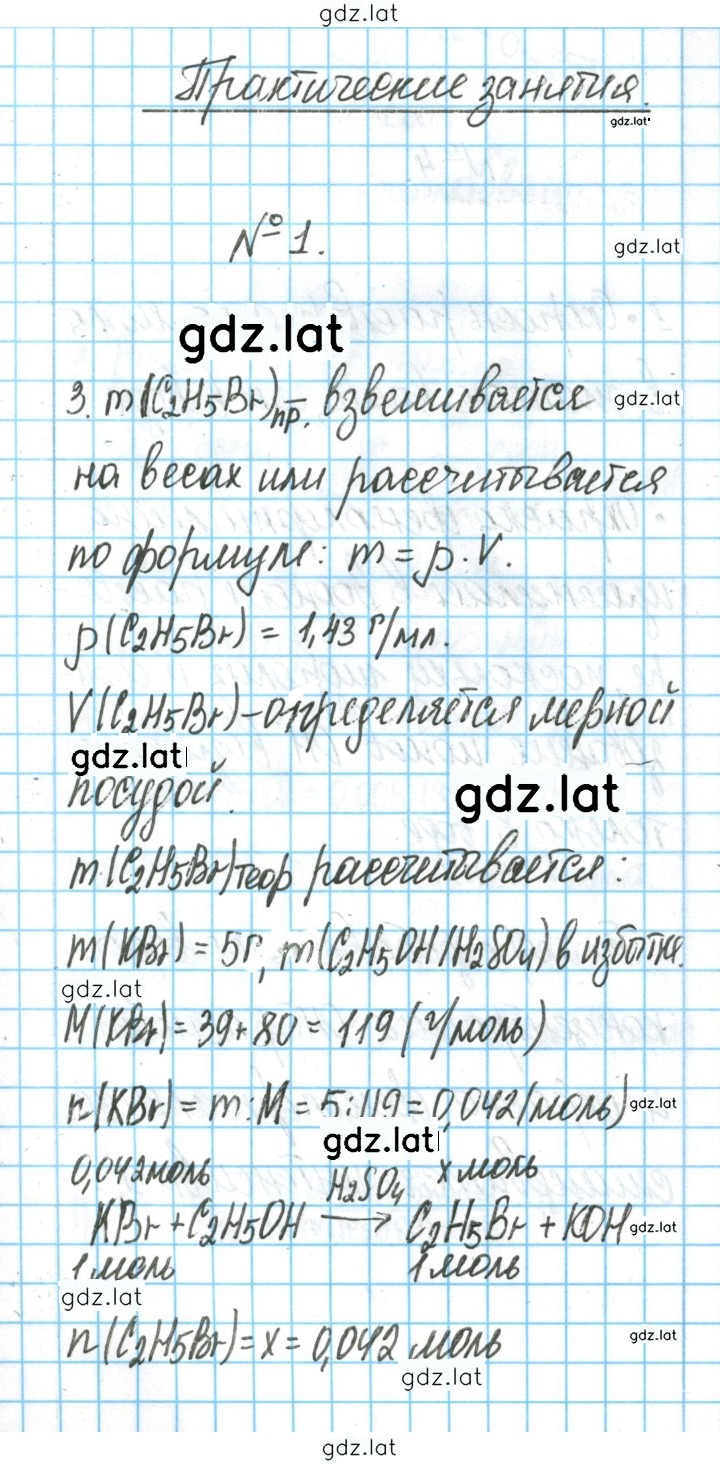 gdz.lat
Практические занятия.
gdz.lat
№ 1.
gdz.lat
gdz.lat
3. m(C₂H₅Br)пр. взвешивается
gdz.lat
на весах или рассчитывается
по формуле: m = ρ · V.
ρ(C₂H₅Br) = 1,43 г/мл.
V(C₂H₅Br) – определяется мерной
gdz.lat
посудой.
gdz.lat
m(C₂H₅Br)теор рассчитывается:
m(KBr) = 5г, m(C₂H₅OH/H₂SO₄) в избытке.
gdz.lat
M(KBr) = 39 + 80 = 119 (г/моль)
n(KBr) = m : M = 5 : 119 = 0,042 (моль)
gdz.lat
gdz.lat
0,042 моль H₂SO₄ x моль
KBr + C₂H₅OH ⟶ C₂H₅Br + KOH
gdz.lat
1 моль 1 моль
gdz.lat
n(C₂H₅Br) = x = 0,042 моль
gdz.lat
gdz.lat
gdz.lat